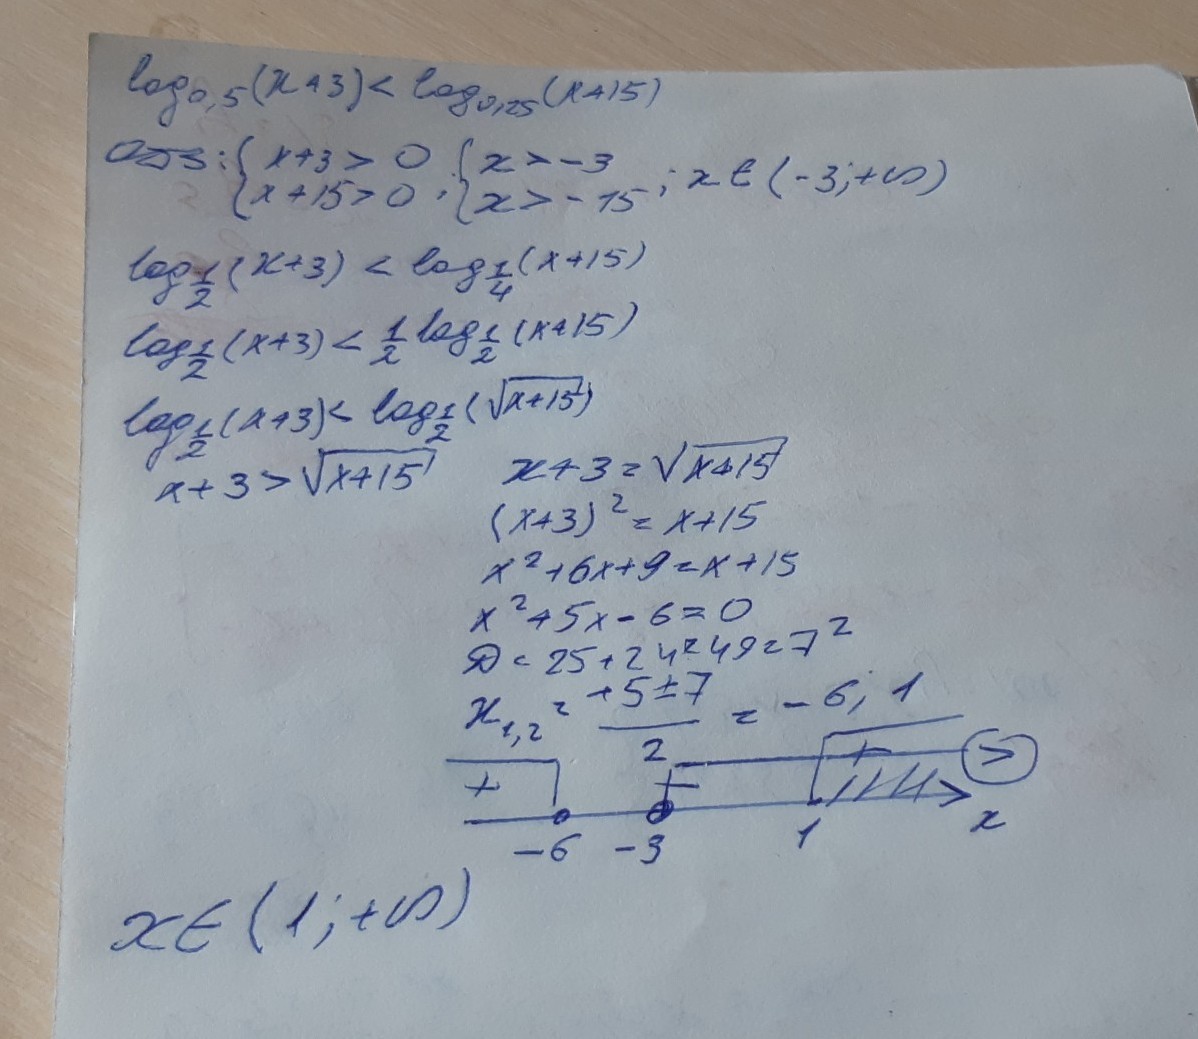 log₀,₅(x+3) < log₀,₂₅(x+15)
ОДЗ: { x+3 > 0 ; { x > -3 ; x ∈ (-3; +∞)
{ x+15 > 0 { x > -15
log_{1/2}(x+3) < log_{1/4}(x+15)
log_{1/2}(x+3) < 1/2 log_{1/2}(x+15)
log_{1/2}(x+3) < log_{1/2}(√(x+15))
x+3 > √(x+15)
x+3 = √(x+15)
(x+3)² = x+15
x²+6x+9 = x+15
x²+5x-6 = 0
D = 25+24 = 49 = 7²
x₁,₂ = (+5±7)/2 = -6; 1
+ − + >
-6 -3 1 x
x ∈ (1; +∞)